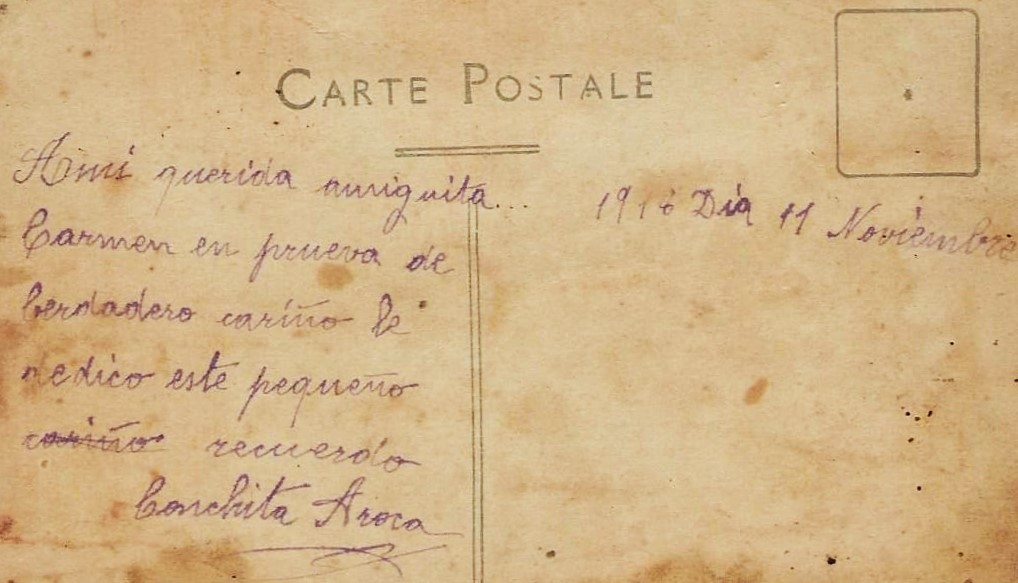 CARTE POSTALE
A mi querida amiguita...
Carmen en prueva de
berdadero cariño le
dedico este pequeño
cariño recuerdo
Conchita Aroca
1916 Dia 11 Noviembre